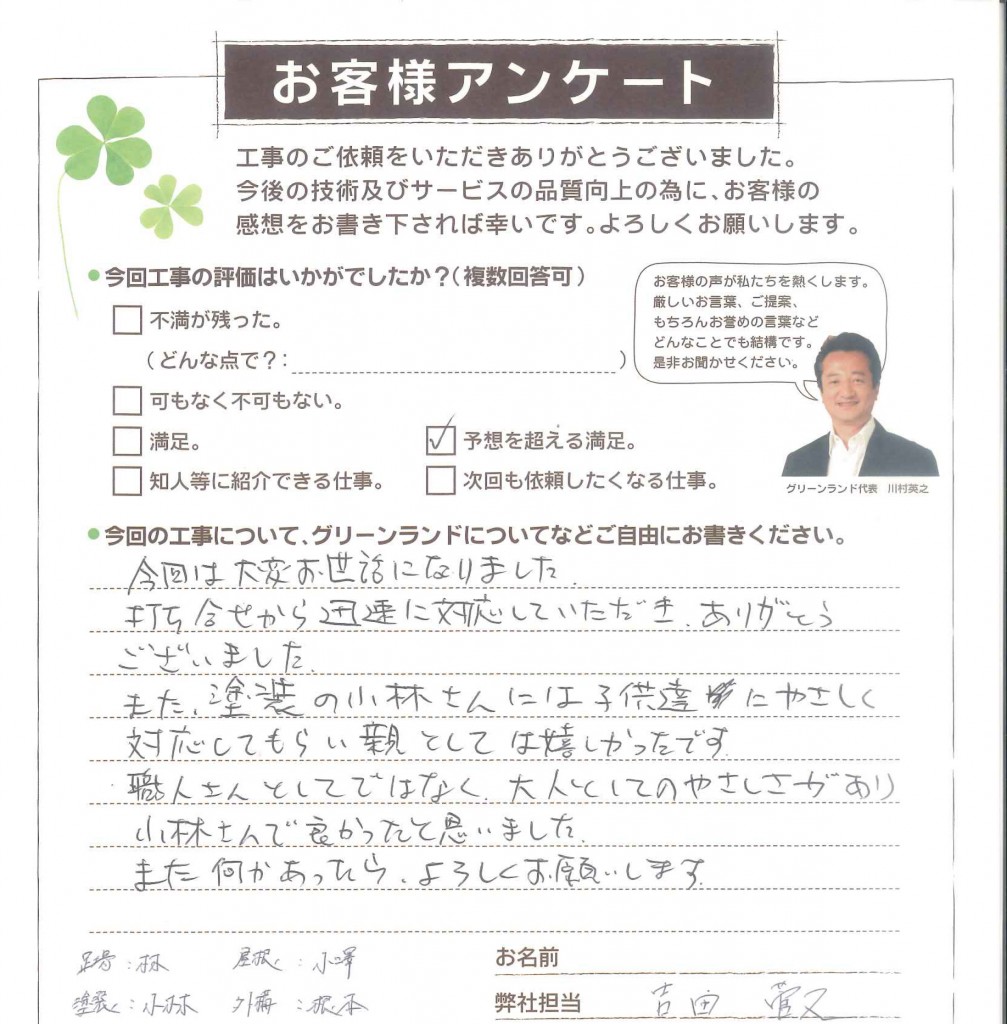 お客様アンケート
工事のご依頼をいただきありがとうございました。
今後の技術及びサービスの品質向上の為に、お客様の
感想をお書き下されば幸いです。よろしくお願いします。
今回工事の評価はいかがでしたか？（複数回答可）
不満が残った。
（どんな点で？：　）
可もなく不可もない。
満足。
予想を超える満足。
知人等に紹介できる仕事。
次回も依頼したくなる仕事。
お客様の声が私たちを熱くします。
厳しいお言葉、ご提案、
もちろんお誉めの言葉など
どんなことでも結構です。
是非お聞かせください。
グリーンランド代表　川村英之
今回の工事について、グリーンランドについてなどご自由にお書きください。
今回は大変お世話になりました.
打ち合せから迅速に対応していただき、ありがとう
ございました.
また、塗装の小林さんには子供達にやさしく
対応してもらい親としては嬉しかったです.
職人さんとしてではなく、大人としてのやさしさがあり
小林さんで良かったと思いました.
また何かあったら、よろしくお願いします.
足場：林　屋根：小澤
塗装：小林　外構：根本
お名前
弊社担当　吉田　菅又